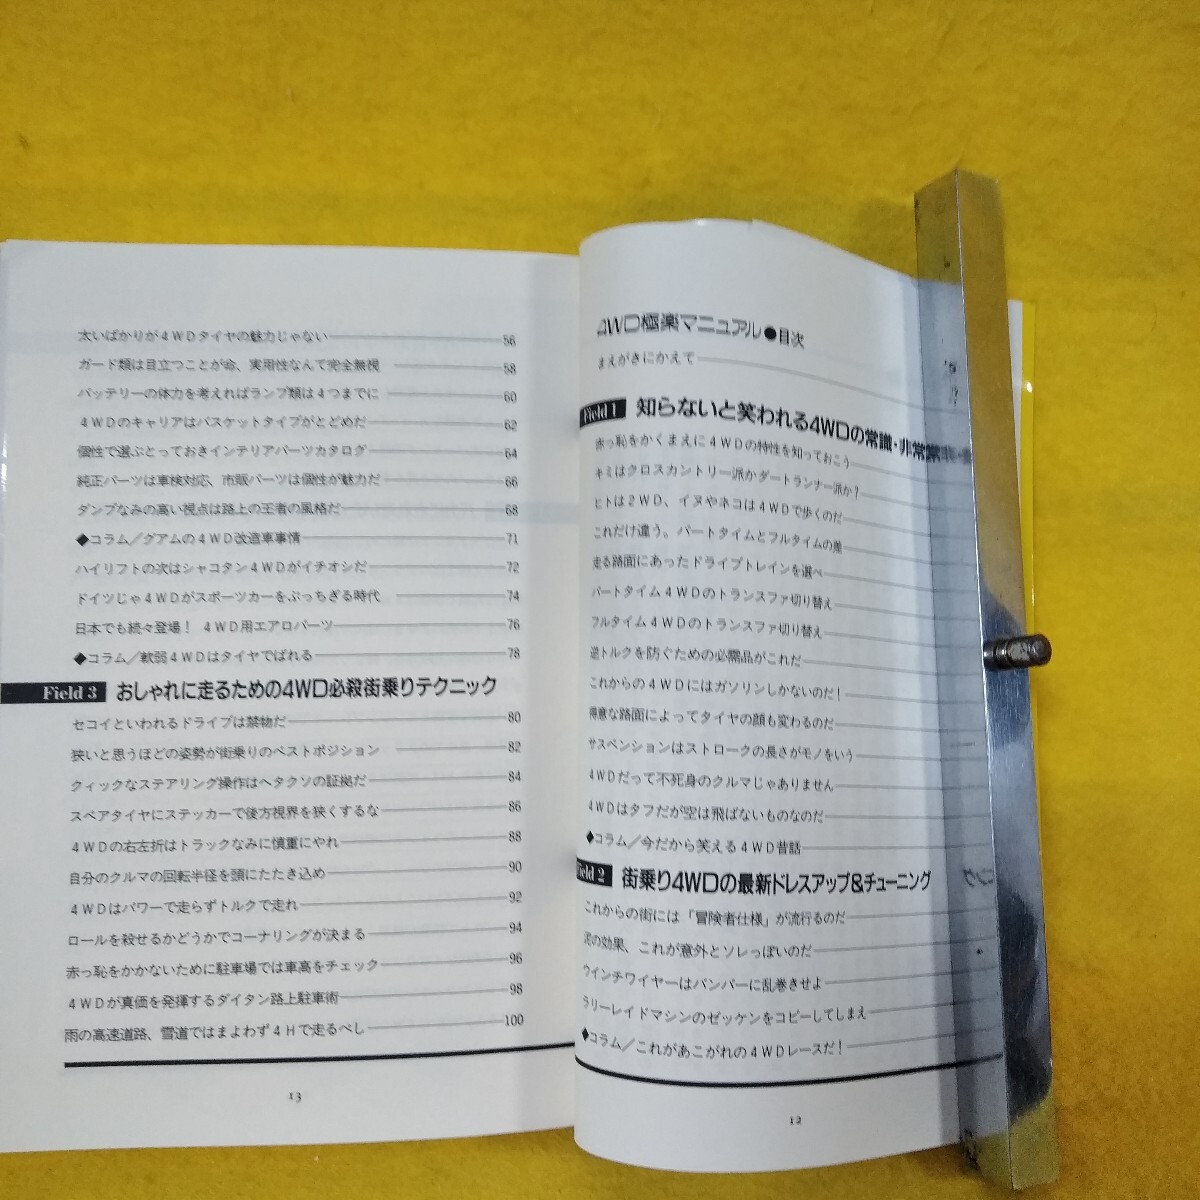 4WD極楽マニュアル●目次
まえがきにかえて
Field 1 知らないと笑われる4WDの常識・非常識
赤っ恥をかくまえに4WDの特性を知っておこう
キミはクロスカントリー派かダートランナー派か?
ヒトは2WD、イヌやネコは4WDで歩くのだ
これだけ違う。パートタイムとフルタイムの差
走る路面にあったドライブトレインを選べ
パートタイム4WDのトランスファ切り替え
フルタイム4WDのトランスファ切り替え
逆トルクを防ぐための必需品がこれだ
これからの4WDにはガソリンしかないのだ!
得意な路面によってタイヤの顔も変わるのだ
サスペンションはストロークの長さがモノをいう
4WDだって不死身のクルマじゃありません
4WDはタフだが空は飛ばないものなのだ
◆コラム/今だから笑える4WD昔話
Field 2 街乗り4WDの最新ドレスアップ&チューニング
これからの街には「冒険者仕様」が流行るのだ
泥の効果、これが意外とソレっぽいのだ
ウインチワイヤーはバンパーに乱巻きせよ
ラリーレイドマシンのゼッケンをコピーしてしまえ
◆コラム/これがあこがれの4WDレースだ!
12
太いばかりが4WDタイヤの魅力じゃない 56
ガード類は目立つことが命、実用性なんて完全無視 58
バッテリーの体力を考えればランプ類は4つまでに 60
4WDのキャリアはバスケットタイプがとどめだ 62
個性で選ぶとっておきインテリアパーツカタログ 64
純正パーツは車検対応、市販パーツは個性が魅力だ 66
ダンプなみの高い視点は路上の王者の風格だ 68
◆コラム/グアムの4WD改造車事情 71
ハイリフトの次はシャコタン4WDがイチオシだ 72
ドイツじゃ4WDがスポーツカーをぶっちぎる時代 74
日本でも続々登場! 4WD用エアロパーツ 76
◆コラム/軟弱4WDはタイヤでばれる 78
Field 3 おしゃれに走るための4WD必殺街乗りテクニック
セコイといわれるドライブは禁物だ 80
狭いと思うほどの姿勢が街乗りのベストポジション 82
クィックなステアリング操作はヘタクソの証拠だ 84
スペアタイヤにステッカーで後方視界を狭くするな 86
4WDの右左折はトラックなみに慎重にやれ 88
自分のクルマの回転半径を頭にたたき込め 90
4WDはパワーで走らずトルクで走れ 92
ロールを殺せるかどうかでコーナリングが決まる 94
赤っ恥をかかないために駐車場では車高をチェック 96
4WDが真価を発揮するダイタン路上駐車術 98
雨の高速道路、雪道ではまよわず4Hで走るべし 100
13